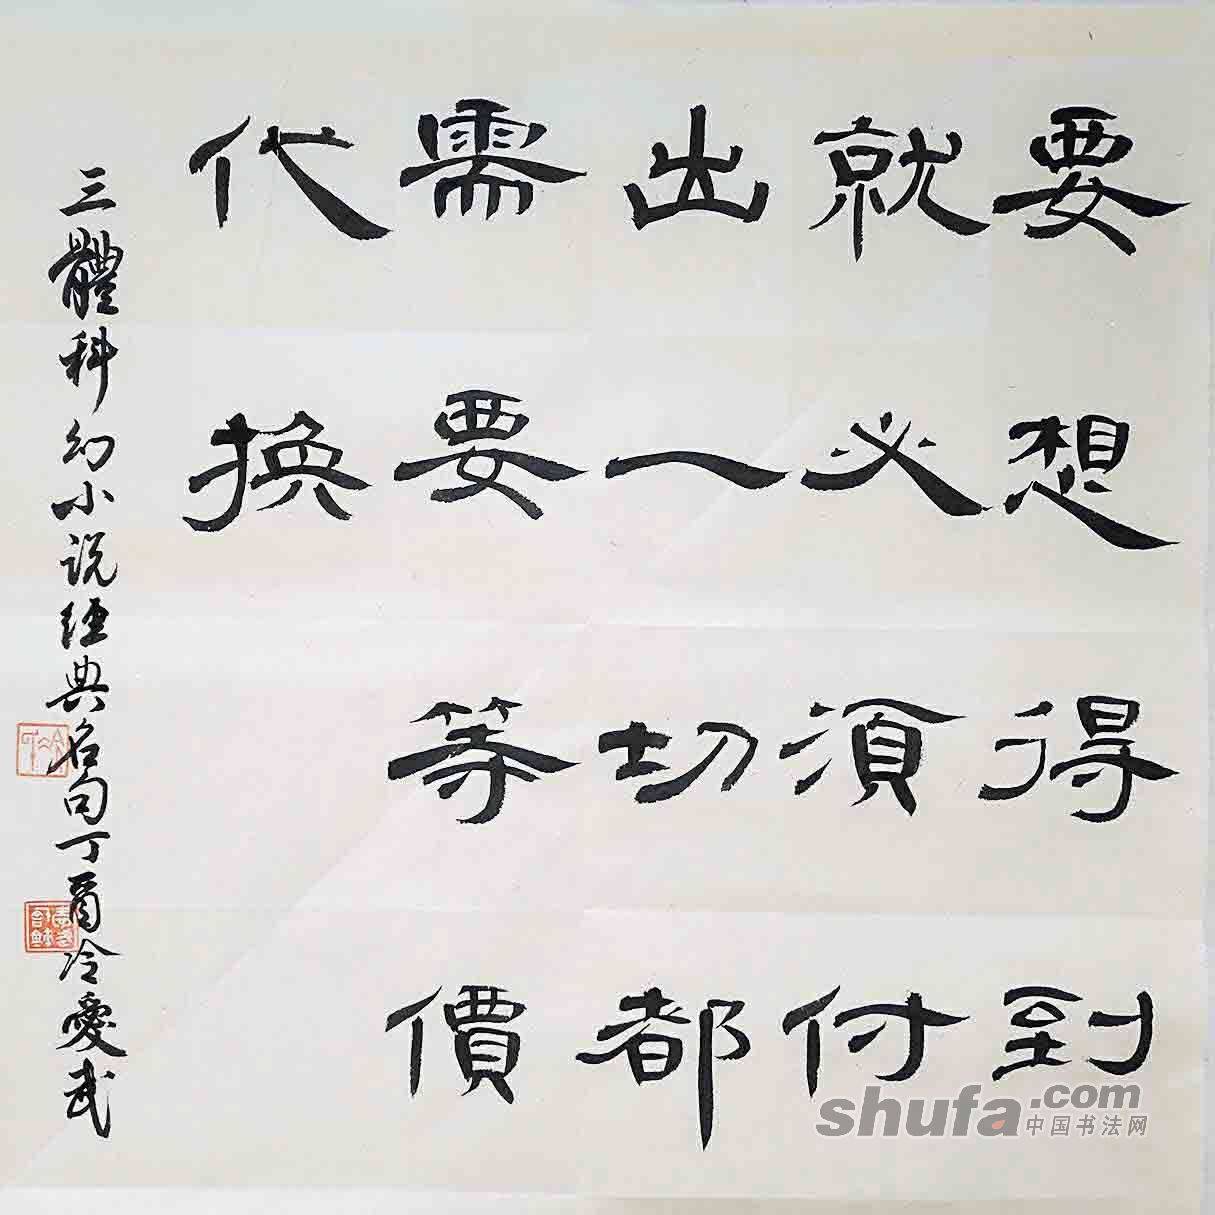 要想得到
就必須付
出一切都
需要等價
代換
三體科幻小说經典名句丁酉冷愛武
shufa.com
中国书法网